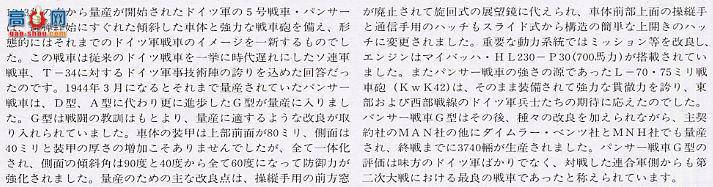 から量産が開始されたドイツ軍の5号戦車・パンサー
にすぐれた傾斜した車体と強力な戦車砲を備え、形
態的にはそれまでのドイツ軍戦車のイメージを一新するものでし
た。この戦車は従来のドイツ戦車を一挙に時代遅れにしたソ連軍
戦車、T-34に対するドイツ軍事技術陣の誇りを込めた回答だっ
たのです。1944年3月になるとそれまで量産されていたパンサー
戦車は、D型、A型に代わり更に進歩したG型が量産に入りまし
た。G型は戦闘の教訓はもとより、量産に適するような改良が取
り入れられていました。車体の装甲は上部前面が80ミリ、側面は
40ミリと装甲の厚さの増加こそありませんでしたが、全て一体化
され、側面の傾斜角は90度と40度から全て60度になって防御力が
強化されました。量産のための主な改良点は、操縦手用の前方窓
が廃止されて旋回式の展望鏡に代えられ、車体前部上面の操縦手
と通信手用のハッチもスライド式から構造の簡単な上開きのハッ
チに変更されました。重要な動力系統ではミッション等を改良し、
エンジンはマイバッハ・HL230-P30(700馬力)が搭載されてい
ました。またパンサー戦車の強さの源であったL-70・75ミリ戦
車砲(KwK42)は、そのまま装備されて強力な貫徹力を誇り、東
部および西部戦線のドイツ軍兵士たちの期待に応えたのでした。
パンサー戦車G型はその後、種々の改良を加えられながら、主契
約社のMAN社の他にダイムラー・ベンツ社とMNH社でも量産
され、終戦までに3740輌が生産されました。パンサー戦車G型の
評価は味方のドイツ軍ばかりでなく、対戦した連合軍側からも第
二次大戦における最良の戦車であったと称えられています。